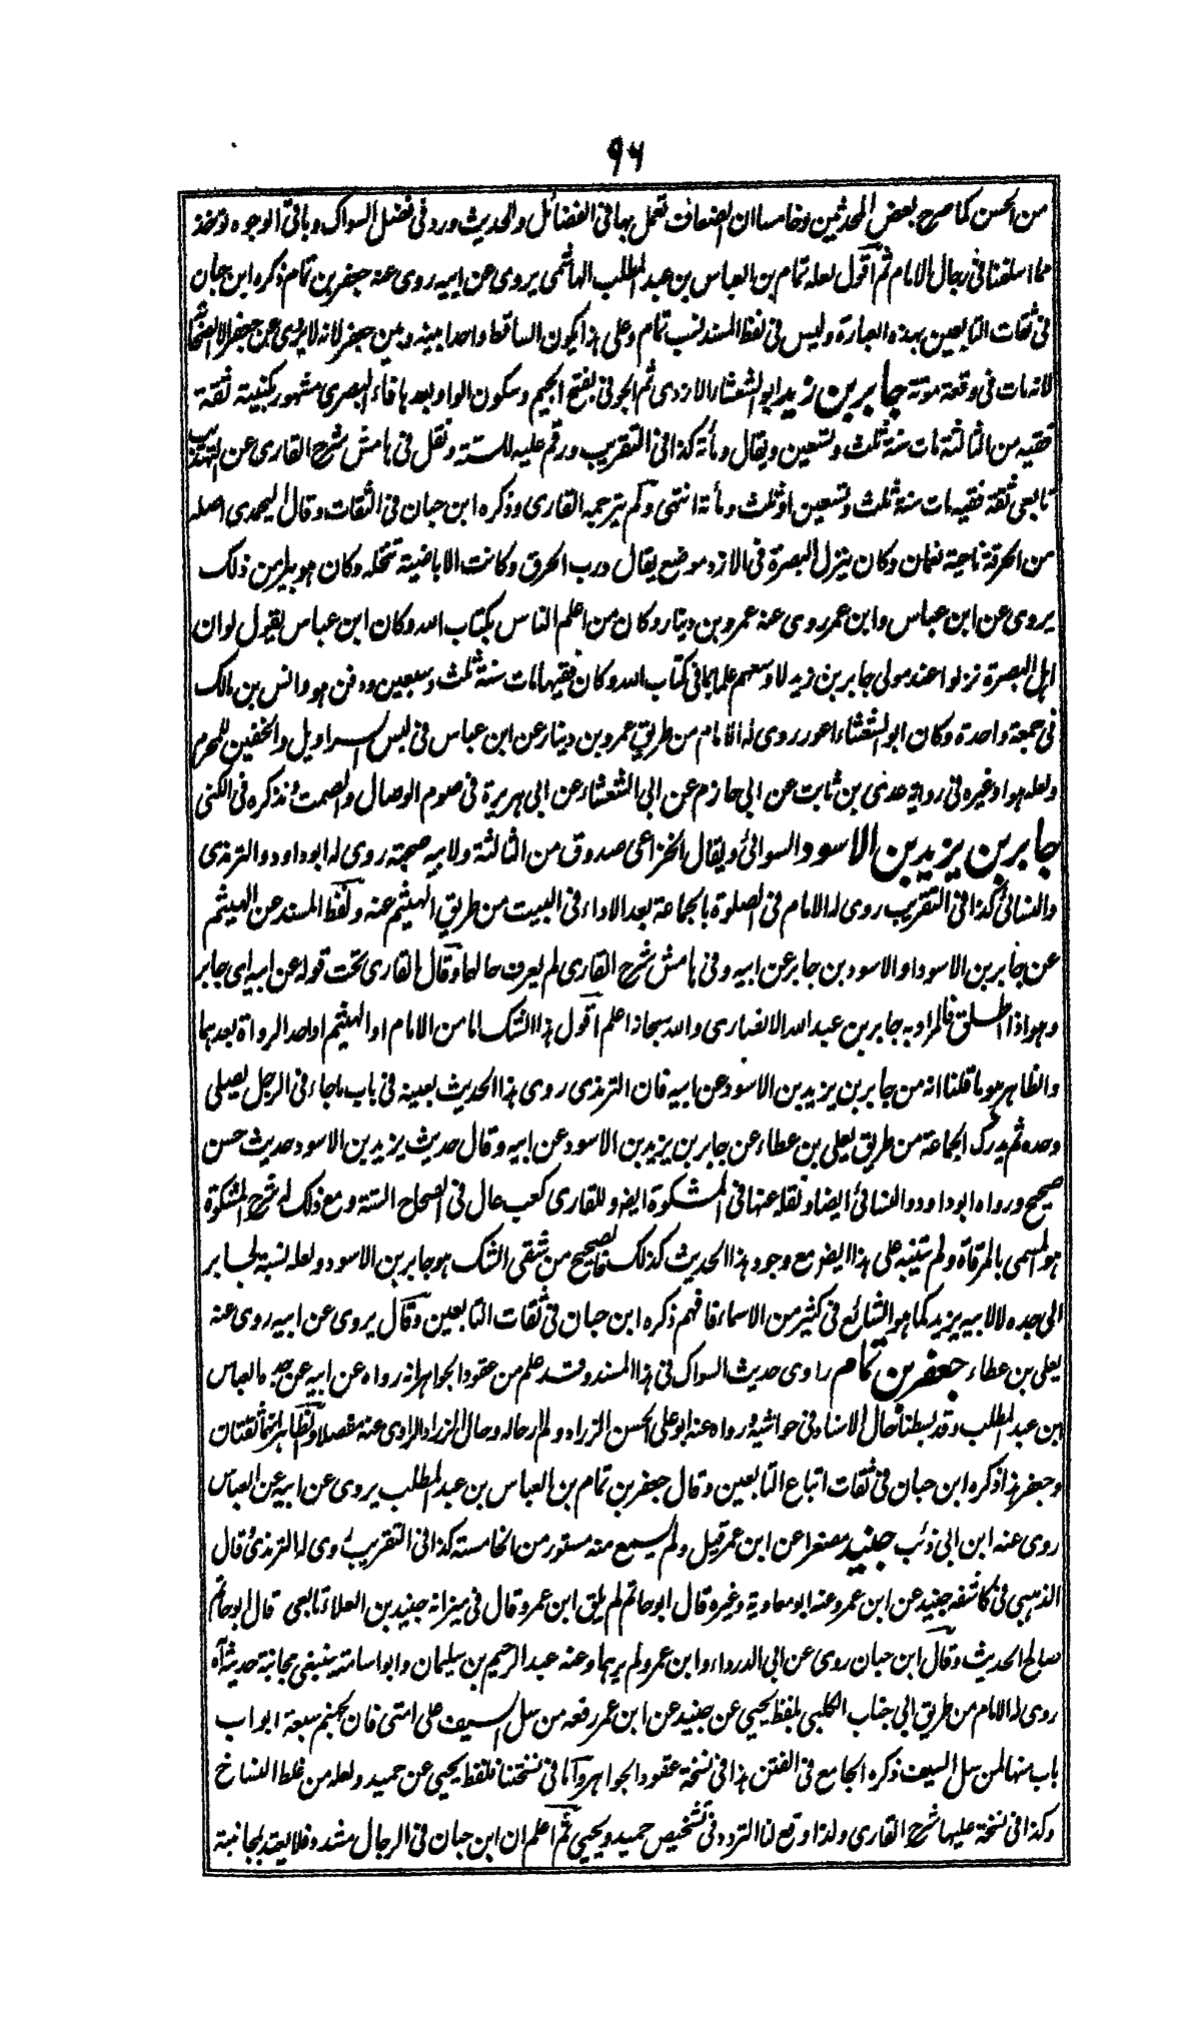 ٩٦
من الحسن كما صرح بعض المحدثين وخامسا ان الضعاف تعمل بها فى الفضائل والحديث ورد فى فضل السواك وباقى الوجوه تؤخذ
مما اسلفنا فى رجال الامام ثم اقول لعله تمام بن العباس بن عبد المطلب الهاشمى يروى عن ابيه روى عنه جعفر بن تمام ذكره ابن حبان
فى ثقات التابعين بهذه العبارة وليس فى لفظ المسند نسب تمام وعلى هذا يكون الساقط واحدا بينه وبين جعفر لانه لا يروى عن جعفر
لانه مات فى وقعة موتة جابر بن زيد ابو الشعثاء الازدى ثم الجوفى بفتح الجيم وسكون الواو بعدها فاء البصرى مشهور بكنيته ثقة
فقيه من الثالثة مات سنة ثلث وتسعين ويقال ومأة كذا فى التقريب ورقم عليه للستة ونقل فى هامش شرح القارى عن التهذيب
تابعى ثقة فقيه مات سنة ثلث وتسعين او ثلث ومأة انتهى ولم يترجمه القارى وذكره ابن حبان فى الثقات وقال اليحمدى اصله
من الحرقة ناحية نعمان وكان ينزل البصرة فى الازد موضع يقال درب الحرق وكانت الاباضية تنتحله وكان هو يتبرأ من ذلك
يروى عن ابن عباس وابن عمر روى عنه عمرو بن دينار وكان من اعلم الناس بكتاب الله وكان ابن عباس يقول لو ان
اهل البصرة نزلوا عند مولى جابر بن زيد لاوسعهم علما بما فى كتاب الله وكان فقيها مات سنة ثلث وتسعين ودفن هو وانس بن مالك
فى جمعة واحدة وكان ابو الشعثاء اعور روى له الامام من طريق عمرو بن دينار عن ابن عباس فى لبس السراويل والخفين للمحرم
ولعله هو او غيره فى رواية عدى بن ثابت عن ابى حازم عن ابى الشعثاء عن ابى هريرة فى صوم الوصال والصمت ونذكره فى الكنى
جابر بن يزيد بن الاسود السوائى ويقال الخزاعى صدوق من الثالثة ولابيه صحبة روى له ابو داود والترمذى
والنسائى كذا فى التقريب روى له الامام فى الصلوة بالجماعة بعد الاداء فى البيت من طريق الهيثم عنه ولفظ المسند عن الهيثم
عن جابر بن الاسود او الاسود بن جابر عن ابيه وفى هامش شرح القارى لم يعرف حالهما وقال القارى تحت قوله عن ابيه اى جابر
وهو اذا اطلق فالمراد به جابر بن عبد الله الانصارى والله سبحانه اعلم اقول هذا الشك اما من الامام او الهيثم او احد الرواة بعدهما
والظاهر هو ما قلنا انه من جابر بن يزيد بن الاسود عن ابيه فان الترمذى روى هذا الحديث بعينه فى باب ما جاء فى الرجل يصلى
وحده ثم يدرك الجماعة من طريق يعلى بن عطاء عن جابر بن يزيد بن الاسود عن ابيه وقال حديث يزيد بن الاسود حديث حسن
صحيح ورواه ابو داود والنسائى ايضا ونقله عنها فى المشكوة ايضا وللقارى كعب عال فى الصحاح الستة ومع ذلك له شرح المشكوة
هو المسمى بالمرقاة ولم يتنبه على هذا ايضا مع وجود هذا الحديث كذلك فالصحيح من شقى الشك هو جابر بن الاسود ولعله نسبة لجابر
الى جده لا لابيه يزيد كما هو الشائع فى كثير من الاسماء فافهم ذكره ابن حبان فى ثقات التابعين وقال يروى عن ابيه روى عنه
يعلى بن عطاء جعفر بن تمام راوى حديث السواك فى هذا المسند وقد علم من عقود الجواهر انه رواه عن ابيه عن جده العباس
ابن عبد المطلب وقد بسطنا حال الاسناد فى حواشيه ورواه عنه ابو على الحسن الزراد ولم ار حاله وحال الزراد الراوى عنه مفصلا والظاهر انهما ثقتان
وجعفر هذا ذكره ابن حبان فى ثقات اتباع التابعين وقال جعفر بن تمام بن العباس بن عبد المطلب يروى عن ابيه عن العباس
روى عنه ابن ابى ذئب جنيد مصغرا عن ابن عمر قيل ولم يسمع منه مستور من الخامسة كذا فى التقريب روى له الترمذى وقال
الذهبى فى كاشفه جنيد عن ابن عمر وعنه ابو معاوية وغيره قال ابو حاتم لم يلق ابن عمر وقال فى ميزانه جنيد بن العلاء تابعى قال ابو حاتم
صالح الحديث وقال ابن حبان روى عن ابى الدرداء وابن عمر ولم يرهما وعنه عبد الرحيم بن سليمان وابو اسامة ينبغى مجانبة حديثه اه
روى له الامام من طريق ابى جناب الكلبى بلفظ يحيى عن جنيد عن ابن عمر رفعه من سل السيف على امتى فان لجهنم سبعة ابواب
باب منها لمن سل السيف ذكره الجامع فى الفتن هذا فى نسخة عقود الجواهر واما فى نسختنا فلفظ يحيى عن حميد ولعله من غلط النساخ
وكذا فى نسخة عليها شرح القارى ولذا وقع لنا التردد فى تشخيص حميد ويحيى ثم اعلم ان ابن حبان فى الرجال متشدد فلا يعتد بمجانبة